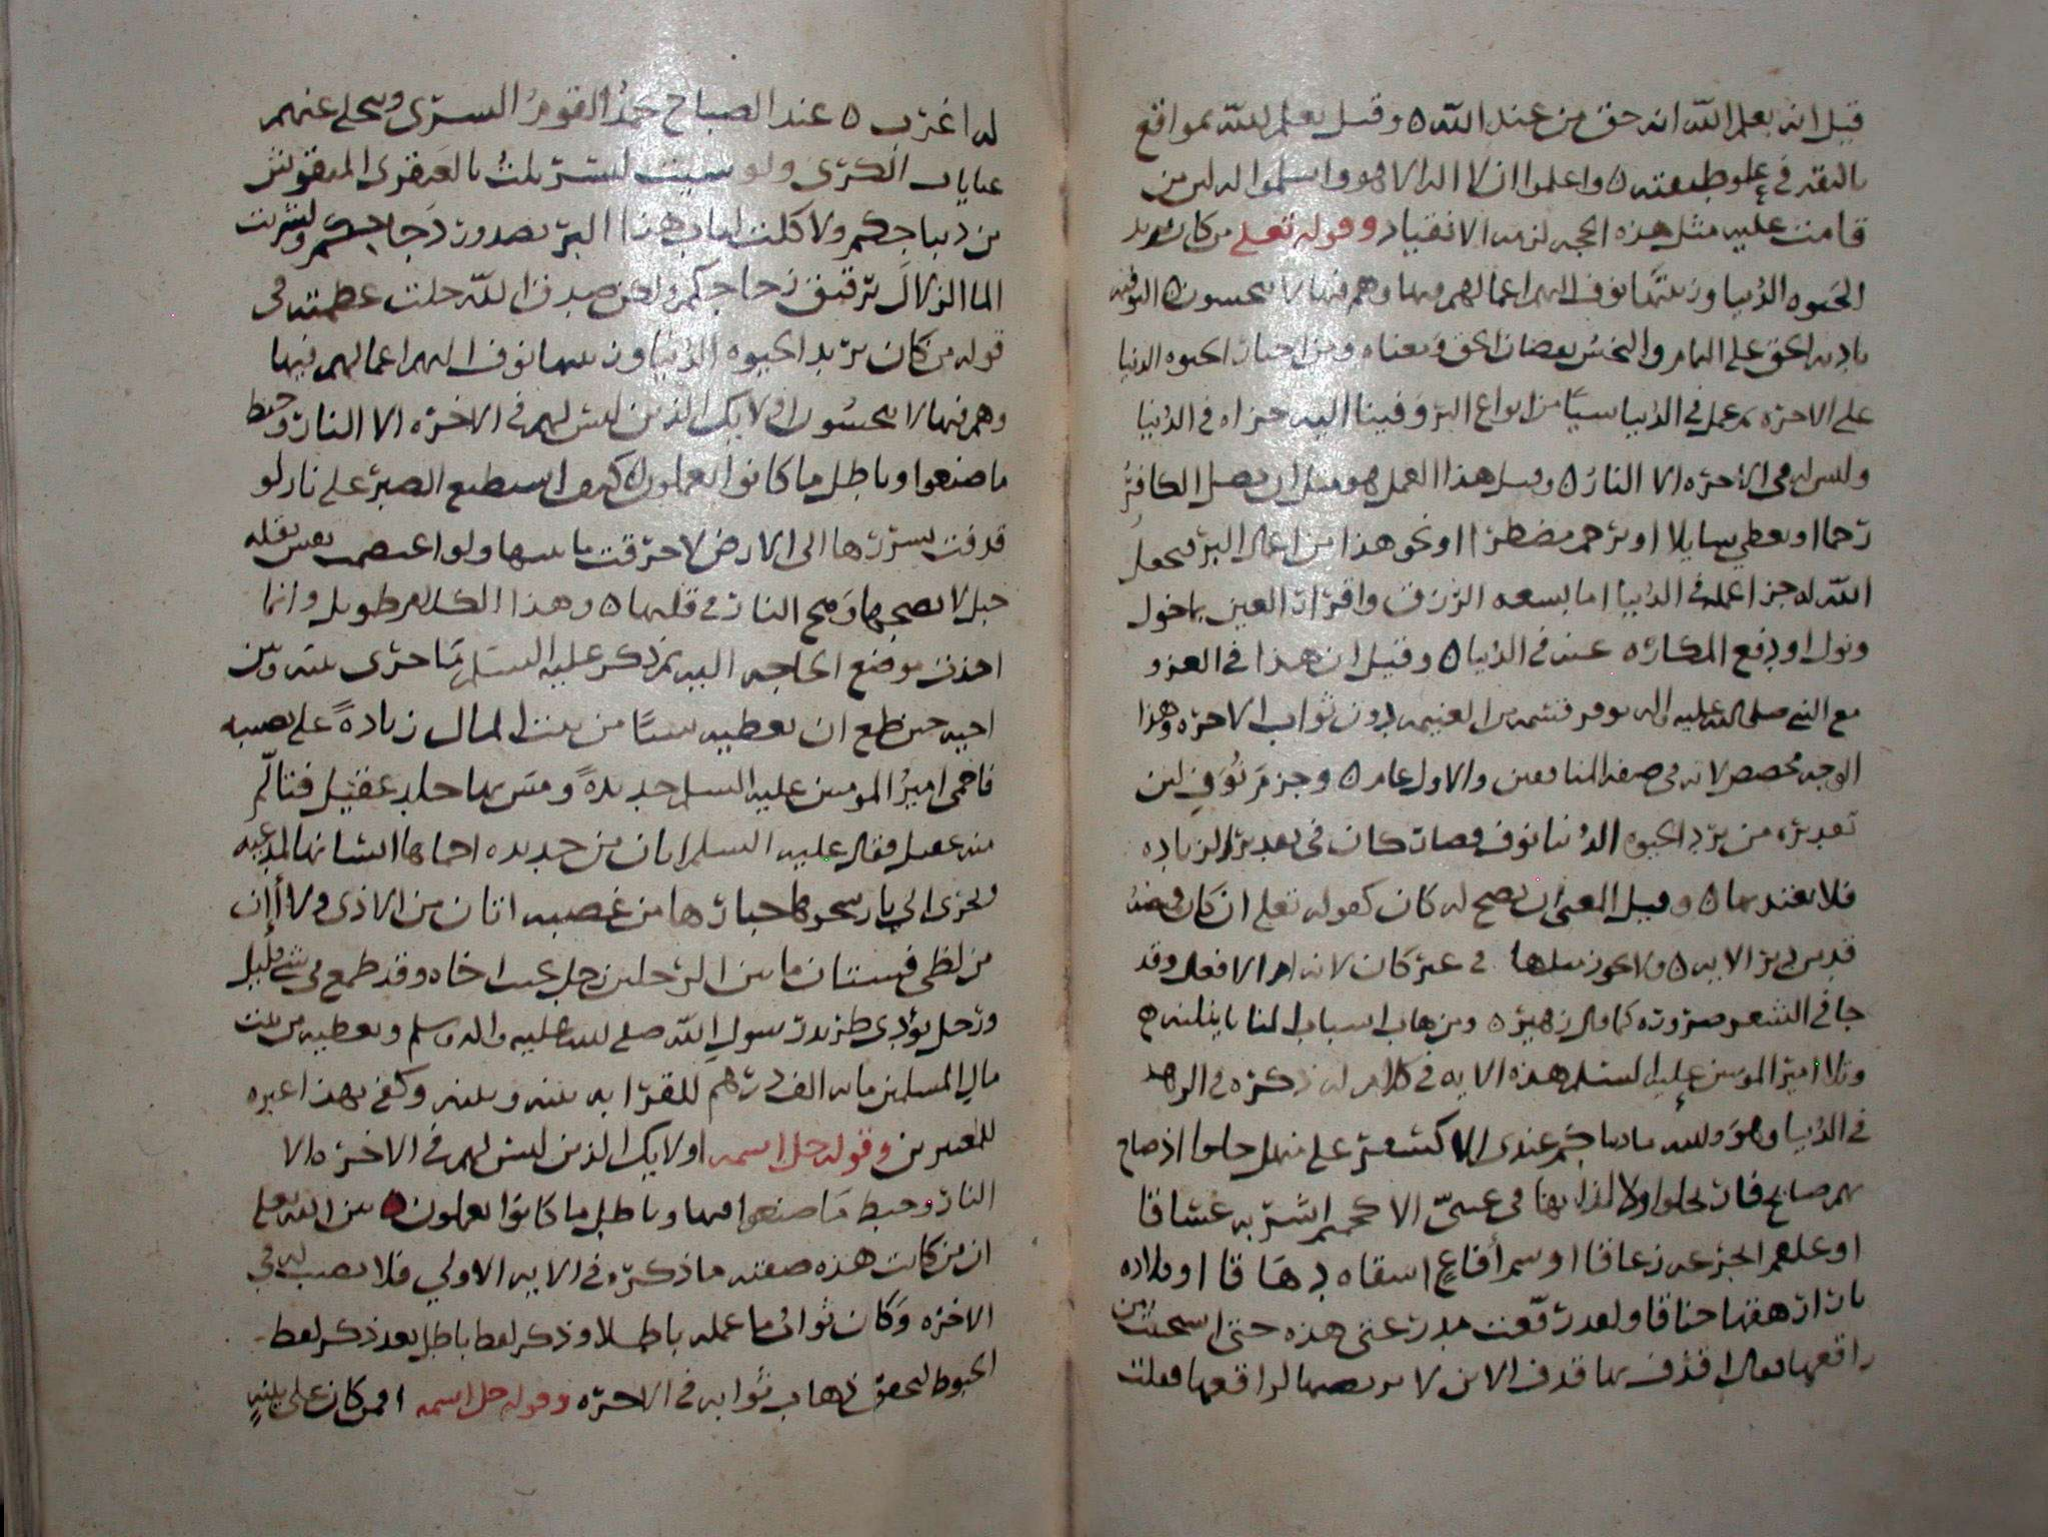 قيل انه يعلم الله انه حق من عند الله ٥ وقيل يعلم الله بمواقع
تاليفه في علو طبقته ٥ واعلموا ان لا اله الا هو واسلموا له لان من
قامت عليه مثل هذه الحجه لزمه الانقياد وقوله تعلى من كان يريد
الحيوه الدنيا وزينتها نوف اليهم اعمالهم فيها وهم فيها لا يبخسون ٥ التوفيه
تاديه الحق على التمام والبخس نقصان الحق ومعناه من اختار الحيوه الدنيا
على الاخره بعمل في الدنيا شيا من انواع البر وفينا اليه جزاه في الدنيا
وليس له في الاخره الا النار ٥ وقيل هذا العمل هو مثل ان يصل الكافر
رحما او يعطي سايلا او يرحم مضطرا او نحو هذا من اعمال البر فيجعل
الله له جزا عمله في الدنيا اما بسعه الرزق واقرار العين بما خول
ونول او بدفع المكاره عنه في الدنيا ٥ وقيل ان هذا في الغزو
مع النبي صلى الله عليه واله يوفر قسمه من الغنيمه بدون ثواب الاخره وهذا
الوجه مخصص لانه في صفه المنافقين والاول عام ٥ وجزم نوف لان
تقديره من يرد الحيوه الدنيا نوف فصارت كان في تقدير الزياده
فلا يعتد بها ٥ وقيل المعنى ان يصح له كان كقوله تعلى ان كان قميصه
قد من دبر الايه ٥ ولا يجوز مثلها في غير كان لانها ام الافعال وقد
جا في الشعر ضروره كما قال زهير ٥ ومن هاب اسباب المنايا ينلنه
وتلا امير المومنين عليه السلم هذه الايه في كلام له ذكره في الزهد
في الدنيا وهو والله ما دنياكم عندى الا كسفر على منهل حلوا اذ صاح
بهم صايحهم فارتحلوا ولا لذاذتها في عيني الا كحميم اشربه غساقا
او علقم اتجرعه زعاقا او سم أفاع اسقاه دهاقا او قلاده
نار ارهقها خناقا ولقد رقعت مدرعتي هذه حتى استحييت من
راقعها فقال اقذف بها قذف الاتن لا يرتضيها لراقعها فقلت
له اغرب ٥ عند الصباح يحمد القوم السرى وينجلي عنهم
غيابات الكرى ولو شيت لتسربلت بالعبقرى المنقوش
من ديباجكم ولاكلت لباب هذا البر بصدور دجاجكم ولشربت
الما الزلال برقيق زجاجكم ولكن صدق الله جلت عظمته في
قوله من كان يريد الحيوه الدنيا وزينتها نوف اليهم اعمالهم فيها
وهم فيها لا يبخسون اولايك الذين ليس لهم في الاخره الا النار وحبط
ما صنعوا وباطل ما كانوا يعملون ٥ كيف استطيع الصبر على نار لو
قذفت بشررها الى الارض لاحرقت نباتها ولو اعتصمت نفس بقله
جبل لانضجها وهج النار في قلتها ٥ وهذا الكلام طويل وانما
اخذت موضع الحاجه اليه ثم ذكر عليه السلم ما جرى بينه وبين
اخيه حين طمع ان يعطيه شيا من بيت المال زيادهً على نصيبه
فاحمى امير المومنين عليه السلم حديدهً ومس بها جلد عقيل فتالم
منه عقيل فقال عليه السلم اتان من حديده احماها انسانها لمدعبه
وتجرنى الى نار سجرها جبارها من غضبه اتان من الاذى ولا أإن
من لظى فشتان ما بين الرجلين رجل عتب اخاه وقد طمع في شي قليل
ورجل يؤدى طريد رسول الله صلى الله عليه واله وسلم ويعطيه من بيت
مال المسلمين مايه الف درهم للقرابه بينه وبينه وكفى بهذا عبره
للمعتبرين وقوله جل اسمه اولايك الذين ليس لهم في الاخره الا
النار وحبط ما صنعوا فيها وباطل ما كانوا يعملون ٥ بين الله تعلى
ان من كانت هذه صفته ما ذكره في الايه الاولى فلا نصيب له في
الاخره وكان ثواب ما عمله باطلا وذكر لفظ باطل بعد ذكر لفظ
الحبوط ليحقق ذهاب ثوابه في الاخره وقوله جل اسمه افمن كان على بينه